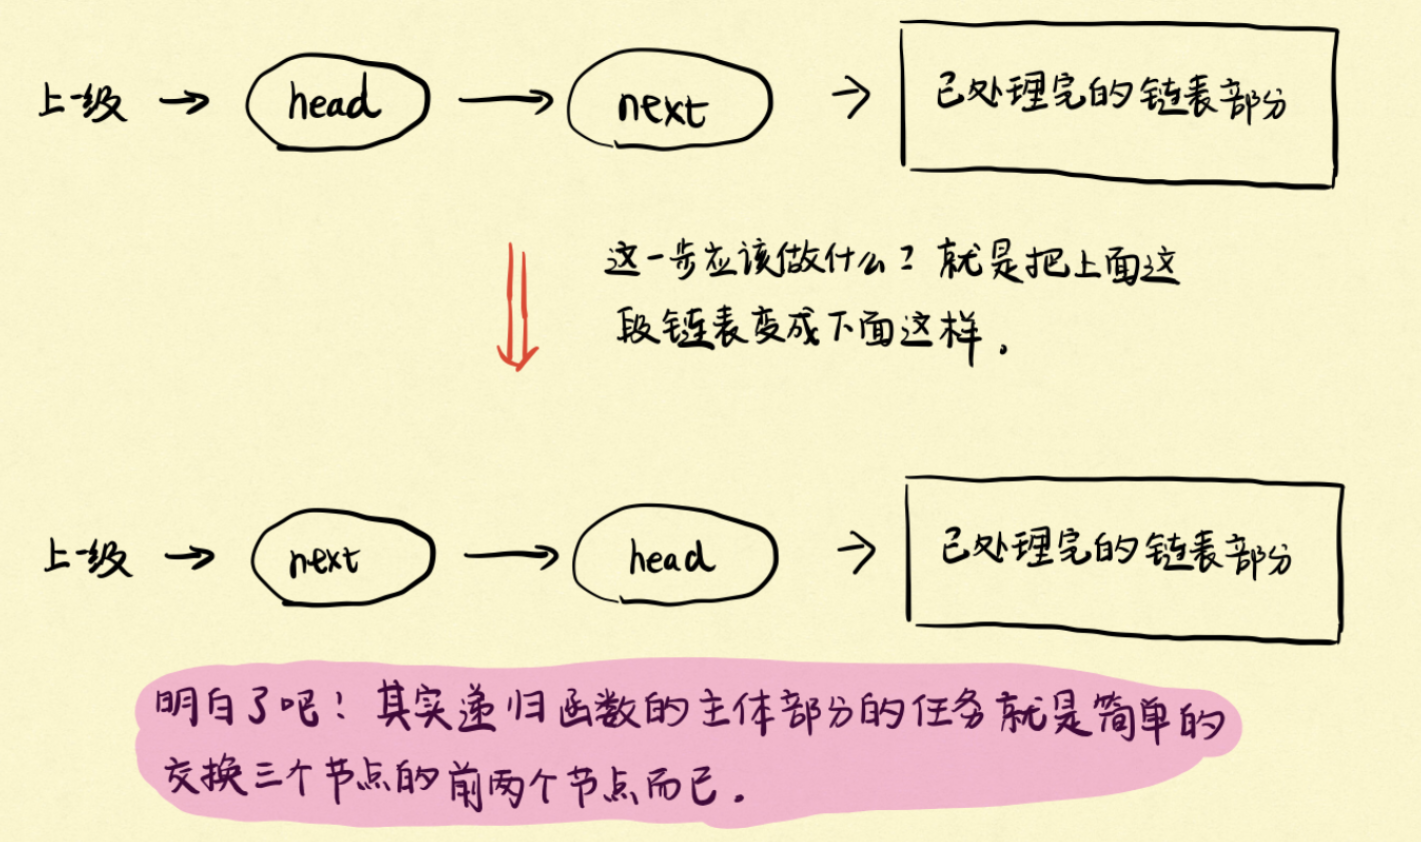 上一级 → head → next → 已处理完的链表部分
这一步应该做什么？就是把上面这
段链表变成下面这样．
上一级 → next → head → 已处理完的链表部分
明白了吧！其实递归函数的主体部分的任务就是简单的
交换三个节点的前两个节点而已．